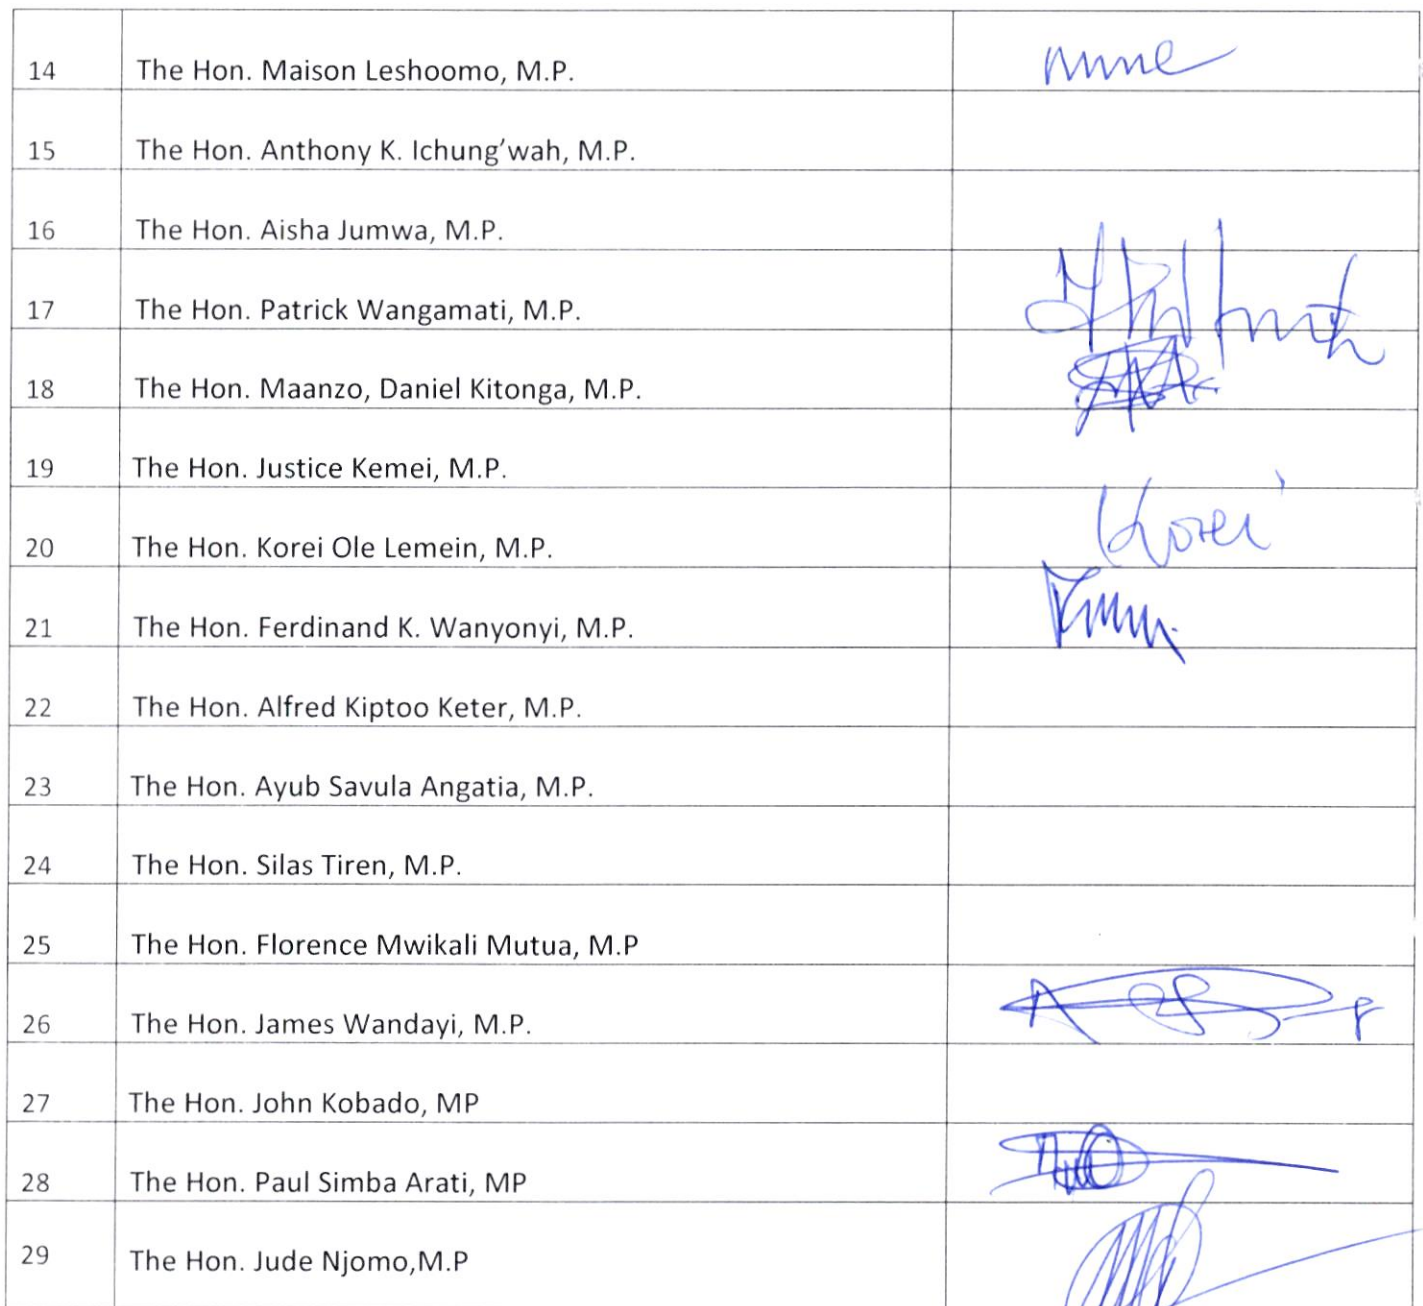 14 The Hon. Maison Leshoomo, M.P.
15 The Hon. Anthony K. Ichung'wah, M.P.
16 The Hon. Aisha Jumwa, M.P.
17 The Hon. Patrick Wangamati, M.P.
18 The Hon. Maanzo, Daniel Kitonga, M.P.
19 The Hon. Justice Kemei, M.P.
20 The Hon. Korei Ole Lemein, M.P. Korei
21 The Hon. Ferdinand K. Wanyonyi, M.P.
22 The Hon. Alfred Kiptoo Keter, M.P.
23 The Hon. Ayub Savula Angatia, M.P.
24 The Hon. Silas Tiren, M.P.
25 The Hon. Florence Mwikali Mutua, M.P
26 The Hon. James Wandayi, M.P.
27 The Hon. John Kobado, MP
28 The Hon. Paul Simba Arati, MP
29 The Hon. Jude Njomo,M.P